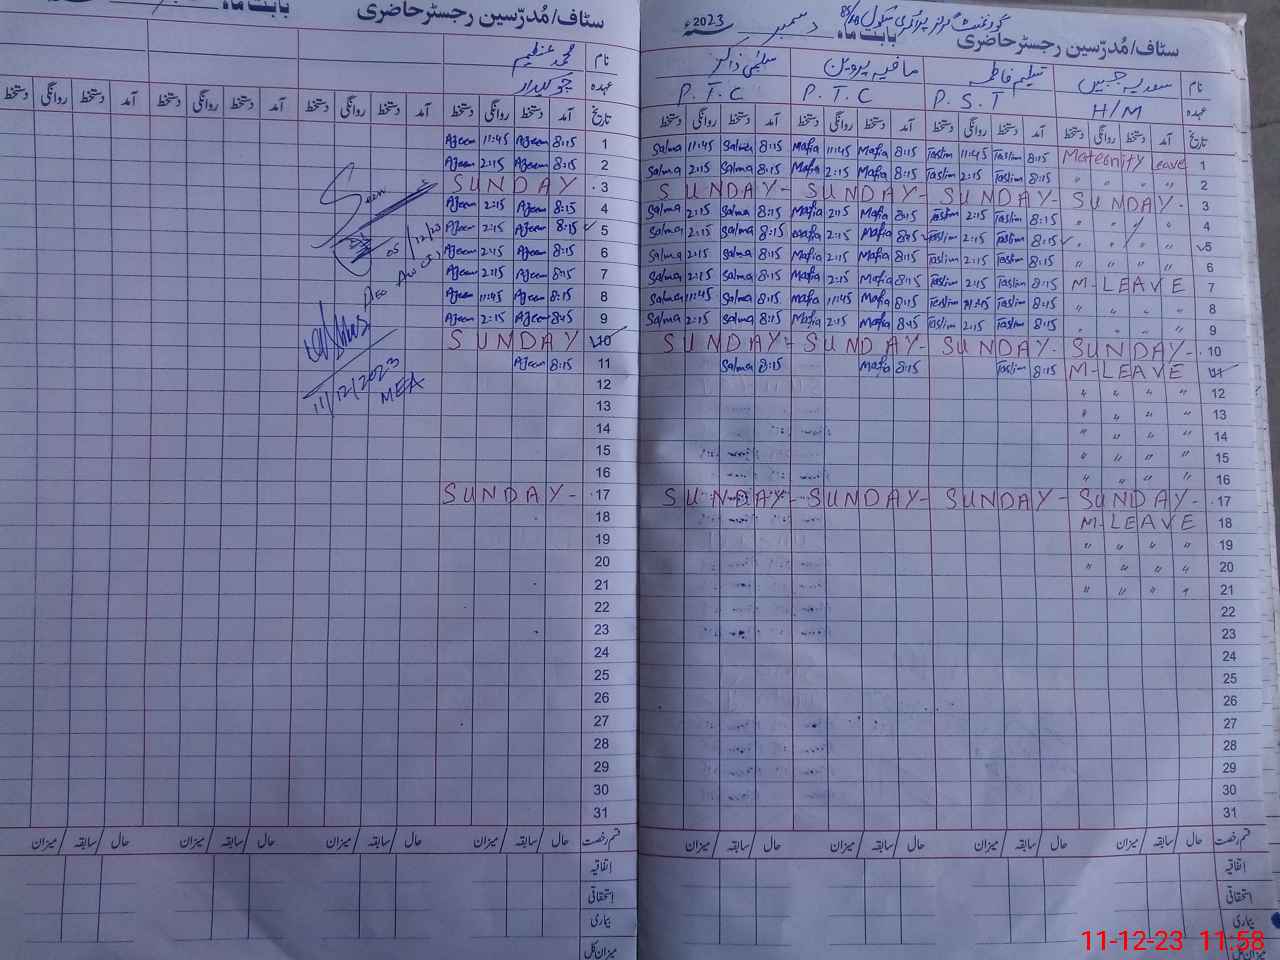 سٹاف/مُدرّسین رجسٹر حاضری بابت ماہ دسمبر سنہ 2023ء
نام سعدیہ جبین تسلیم فاطمہ مافیہ پروین سلمیٰ ذاکر
عہدہ H/M P.S.T P.T.C P.T.C
تاریخ آمد دستخط روانگی دستخط آمد دستخط روانگی دستخط آمد دستخط روانگی دستخط آمد دستخط روانگی دستخط
Salma 11:45 Salma 8:15 Mafia 11:45 Mafia 8:15 Taslim 11:45 Taslim 8:15 Maternity Leave 1
Salma 2:15 Salma 8:15 Mafia 2:15 Mafia 8:15 Taslim 2:15 Taslim 8:15 " " " " 2
SUNDAY - SUNDAY - SUNDAY - SUNDAY - 3
Salma 2:15 Salma 8:15 Mafia 2:15 Mafia 8:15 Taslim 2:15 Taslim 8:15 " " " " 4
Salma 2:15 Salma 8:15 Mafia 2:15 Mafia 8:15 Taslim 2:15 Taslim 8:15 " " " " 5
Salma 2:15 Salma 8:15 Mafia 2:15 Mafia 8:15 Taslim 2:15 Taslim 8:15 " " " " 6
Salma 2:15 Salma 8:15 Mafia 2:15 Mafia 8:15 Taslim 2:15 Taslim 8:15 M-LEAVE 7
Salma 11:45 Salma 8:15 Mafia 11:45 Mafia 8:15 Taslim 11:45 Taslim 8:15 " " " " 8
Salma 2:15 Salma 8:15 Mafia 2:15 Mafia 8:15 Taslim 2:15 Taslim 8:15 " " " " 9
SUNDAY - SUNDAY - SUNDAY - SUNDAY - 10
Salma 8:15 Mafia 8:15 Taslim 8:15 M-LEAVE 11
" " " " 12
" " " " 13
" " " " 14
" " " " 15
" " " " 16
SUNDAY - SUNDAY - SUNDAY - SUNDAY - 17
M-LEAVE 18
" " " " 19
" " " " 20
" " " " 21
22
23
24
25
26
27
28
29
30
31
قسم رخصت حال/سابقہ/میزان حال/سابقہ/میزان حال/سابقہ/میزان حال/سابقہ/میزان
اتفاقیہ
استحقاقی
بیماری
میزان کل
سٹاف/مُدرّسین رجسٹر حاضری بابت ماہ
نام محمد عظیم
عہدہ چوکیدار
تاریخ آمد دستخط روانگی دستخط آمد دستخط روانگی دستخط آمد دستخط روانگی دستخط آمد دستخط روانگی دستخط
Ajeem 11:45 Ajeem 8:15 1
Ajeem 2:15 Ajeem 8:15 2
SUNDAY 3
Ajeem 2:15 Ajeem 8:15 4
Ajeem 2:15 Ajeem 8:15 5
Ajeem 2:15 Ajeem 8:15 6
Ajeem 2:15 Ajeem 8:15 7
Ajeem 11:45 Ajeem 8:15 8
Ajeem 2:15 Ajeem 8:15 9
SUNDAY 10
Ajeem 8:15 11
12
13
14
15
16
SUNDAY - 17
18
19
20
21
22
23
24
25
26
27
28
29
30
31
Seen
05/12/23
11/12/2023
MEA
قسم رخصت حال/سابقہ/میزان حال/سابقہ/میزان حال/سابقہ/میزان حال/سابقہ/میزان
اتفاقیہ
استحقاقی
بیماری
میزان کل
11-12-23 11:58